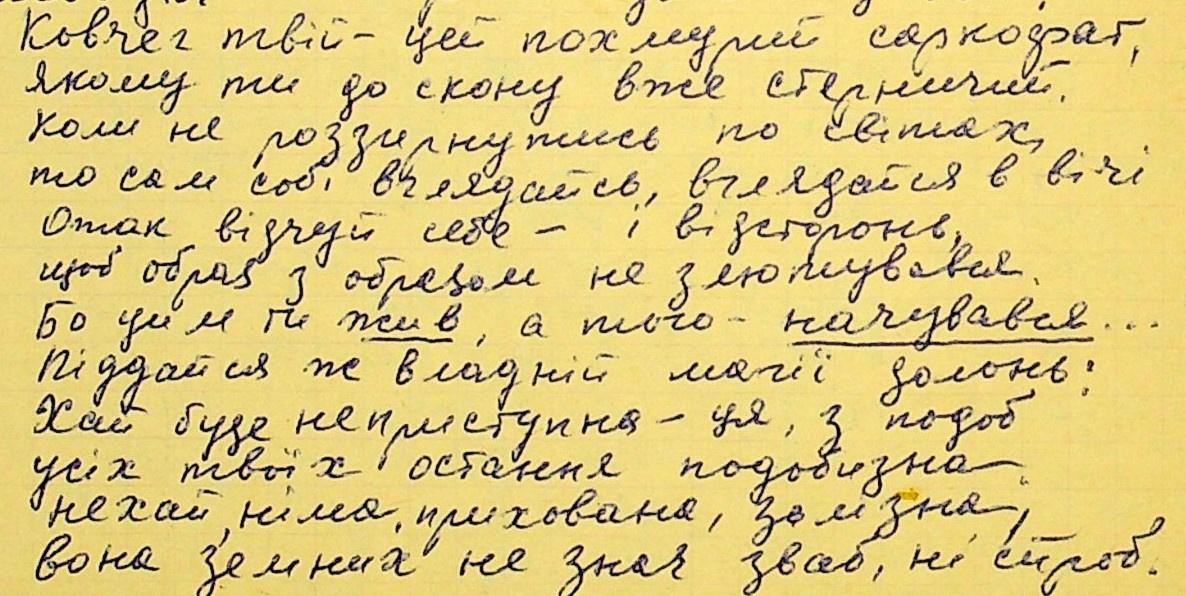 Ковчег твій – цей похмурий саркофаг,
якому ти до скону вже стерничий.
Коли не роззирнутись по світах,
то сам собі вглядайсь, вглядайся в вічі
Отак відчуй себе – і відсторонь,
щоб образ з образом не злютувався.
Бо цим ти жив, а того – начувався...
Піддайся ж владній магії долонь:
Хай буде неприступна – ця, з подоб
усіх твоїх остання подобизна
нехай, німа, прихована, залізна,
вона земних не знає зваб, ні спроб.